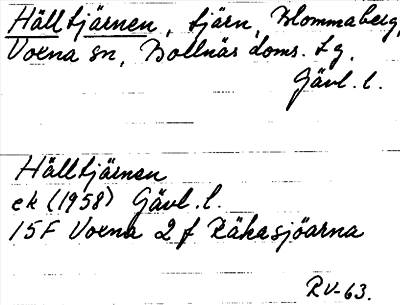 Hälltjärnen, tjärn, Blommaberg,
Voxna sn, Bollnäs doms. tg.
Gävl. l.
Hälltjärnen
ek (1958) Gävl. l.
15F Voxna 2 f Räkasjöarna
RV-63.